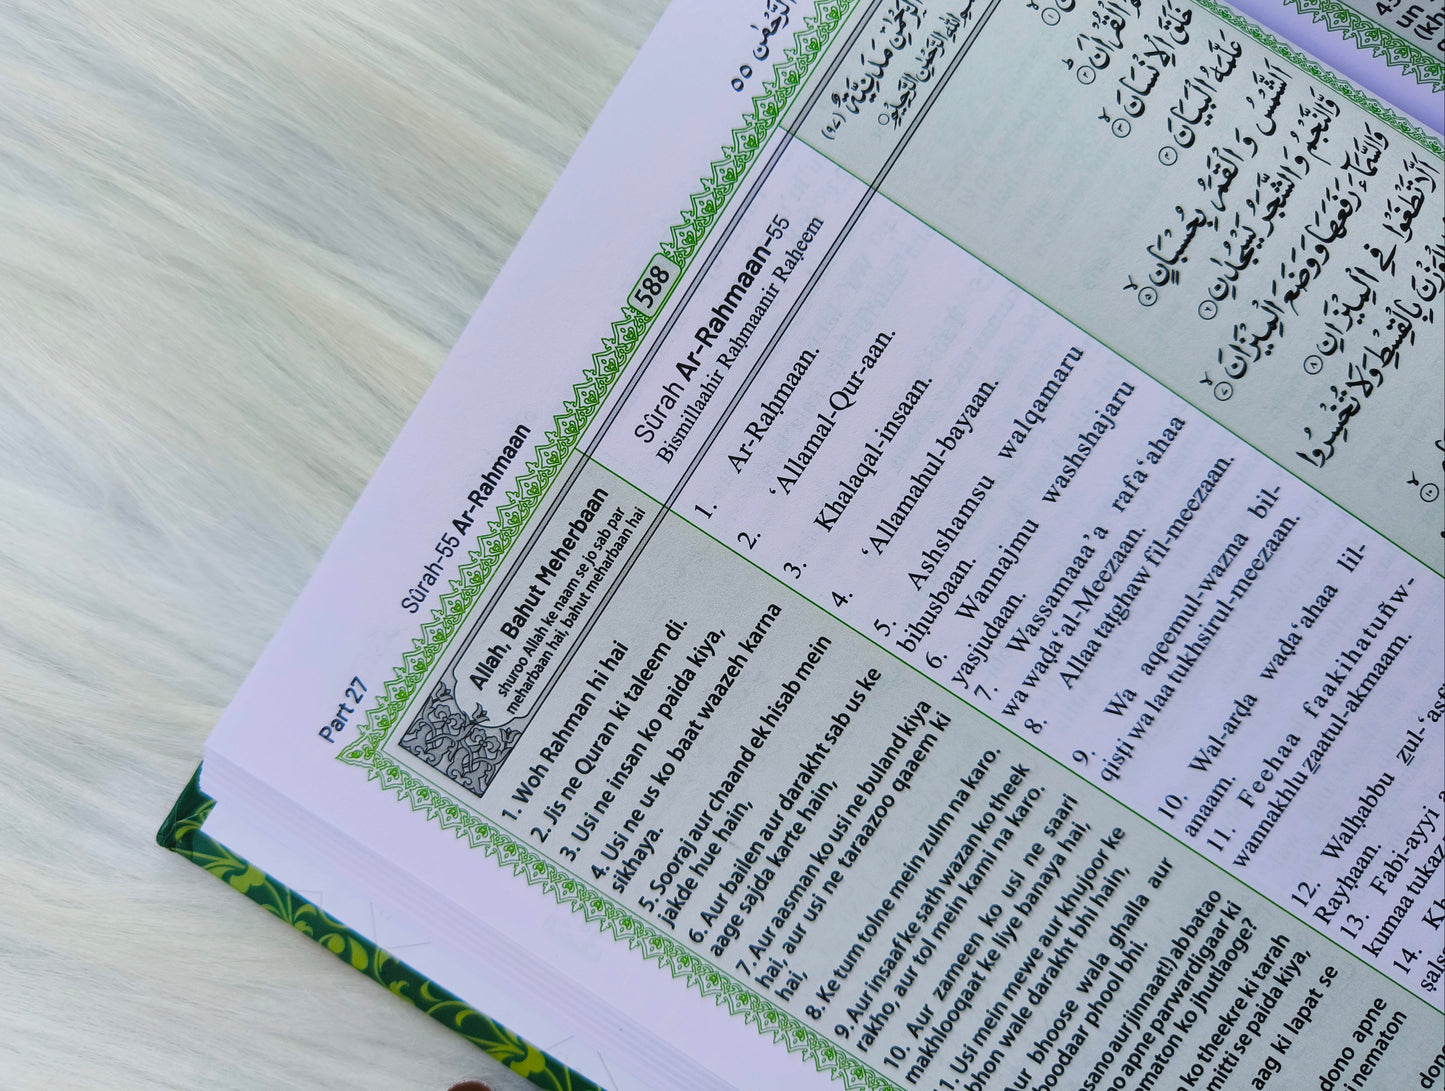 Part 27
Sûrah-55 Ar-Rahmaan
588
Allah, Bahut Meherbaan
shuroo Allah ke naam se jo sab par
meharbaan hai, bahut meharbaan hai
1. Woh Rahman hi hai
2. Jis ne Quran ki taleem di.
3. Usi ne insan ko paida kiya,
4. Usi ne us ko baat waazeh karna
sikhaya.
5. Sooraj aur chaand ek hisab mein
jakde hue hain,
6. Aur bailen aur darakht sab us ke
aage sajda karte hain,
7. Aur aasman ko usi ne buland kiya
hai, aur usi ne taraazoo qaaem ki
hai,
8. Ke tum tolne mein zulm na karo.
9. Aur insaaf ke sath wazan ko theek
rakho, aur tol mein kami na karo.
10. Aur zameen ko usi ne saari
makhlooqaat ke liye banaya hai,
11. Usi mein mewe aur khujoor ke
bhon wale darakht bhi hain,
Aur bhoose wala ghalla aur
boodaar phool bhi.
aur jinnaat!) ab batao
apne parwardigaar ki
ko jhutlaoge?
ko theekre ki tarah
mitti se paida kiya,
aag ki lapat se
dono apne
Sûrah Ar-Rahmaan-55
Bismillaahir Rahmaanir Raḥeem
1. Ar-Raḥmaan.
2. ‘Allamal-Qur-aan.
3. Khalaqal-insaan.
4. ‘Allamahul-bayaan.
5. Ashshamsu walqamaru
biḥusbaan.
6. Wannajmu washshajaru
yasjudaan.
7. Wassamaaa’a rafa‘ahaa
wa waḍa‘al-Meezaan.
8. Allaa taṭghaw fil-meezaan.
9. Wa aqeemul-wazna bil-
qisṭi wa laa tukhsirul-meezaan.
10. Wal-arḍa waḍa‘ahaa lil-
anaam.
11. Feehaa faakihatuñw-
wannakhlu ẕaatul-akmaam.
12. Walḥabbu ẕul-‘aṣ
Rayḥaan.
13. Fabi-ayyi
kumaa tukaẕ
14.
ٱلرَّحْمٰن ٥٥
مَدَنِيَّةٌ (٩٧)
الرَّحْمٰنِ الرَّحِيْمِ
الْقُرْاٰنَ ۟ؕ ٢
خَلَقَ الْاِنْسَانَ ۙ ٣
عَلَّمَهُ الْبَيَانَ ٤
اَلشَّمْسُ وَ الْقَمَرُ بِحُسْبَانٍ ٥
وَّالنَّجْمُ وَ الشَّجَرُ يَسْجُدٰنِ ٦
وَالسَّمَآءَ رَفَعَهَا وَوَضَعَ الْمِيْزَانَ ۙ ٧
اَلَّا تَطْغَوْا فِي الْمِيْزَانِ ٨
الْوَزْنَ بِالْقِسْطِ وَلَا تُخْسِرُوا